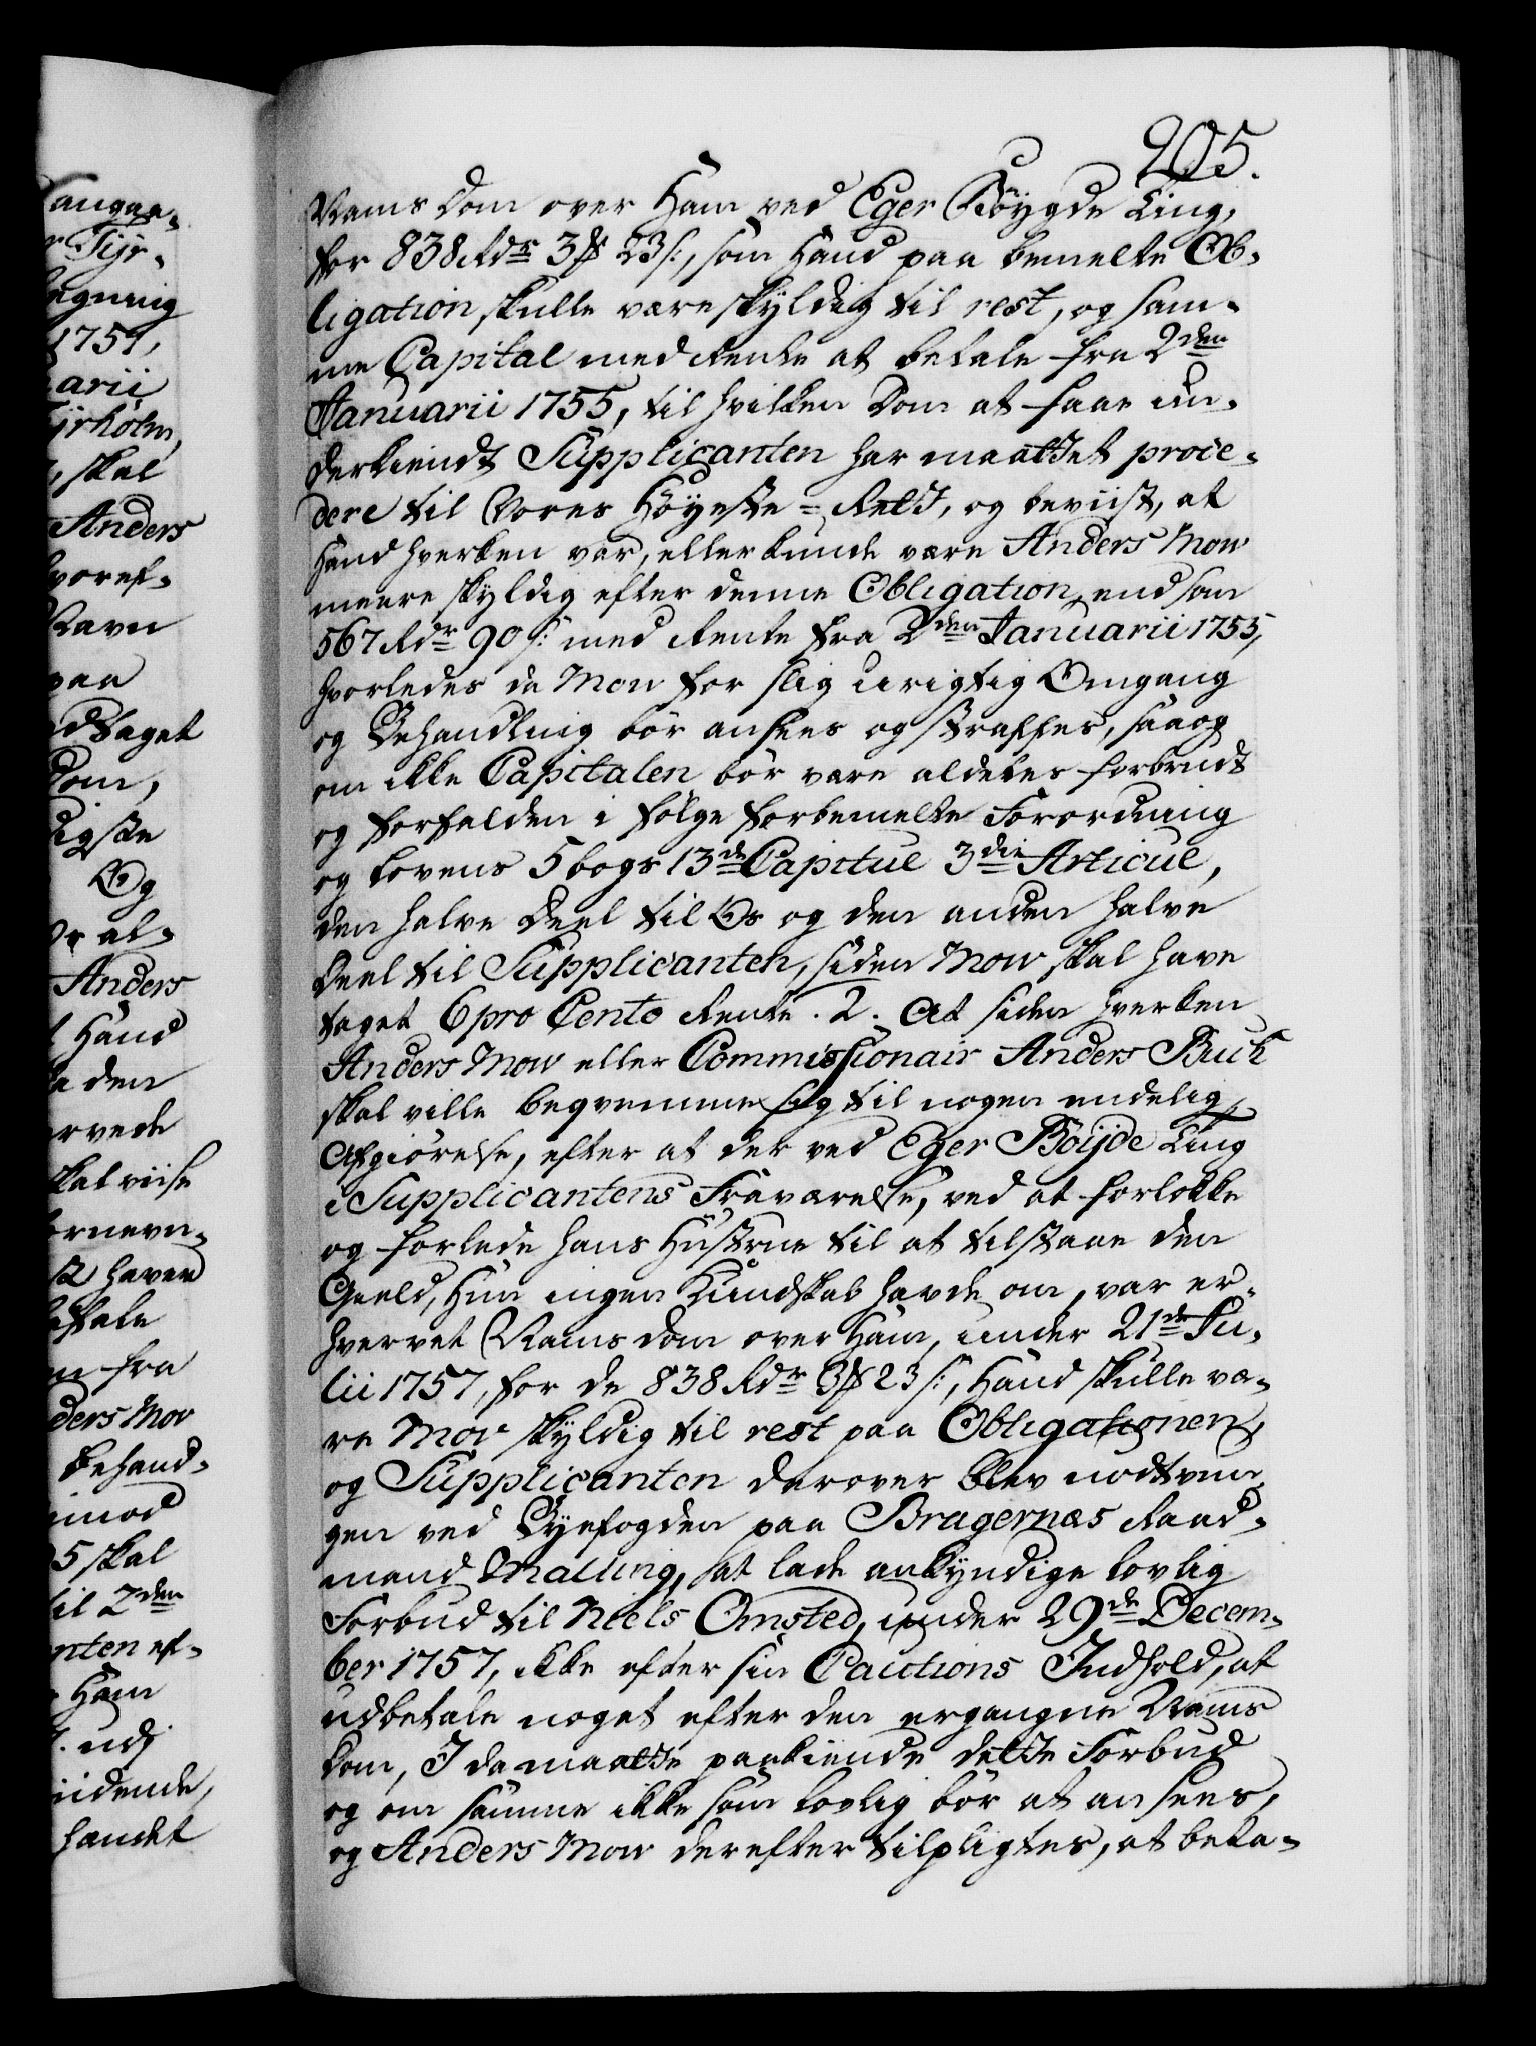 205.
Navns Dom over Ham ved Eger Böygde Ting,
for 838 Rdr 3 ß 23 s:, som Hand paa bemelte Ob-
ligation skulle være skyldig til rest, og sam-
me Capital med Rente at betale fra 2den
Januarii 1755, til hvilken Dom at faae un-
derkiendt Supplicanten har maattet proce-
dere til Vores Höyeste-Rett, og beviist, at
Hand hverken var, eller kunde være Anders Mow
meere skyldig efter denne Obligation, end som
567 Rdr 90 s: med Rente fra 2den Januarii 1755,
hvorledes da Mow for slig urigtig Omgang
og Behandling bör ansees og straffes, saa og
om ikke Capitalen bör være aldeles forbrudt
og forfalden i fölge forbemelte Forordning
og Lovens 5 bogs 13de Capitul 3die Articul,
den halve Deel til Os og den anden halve
Deel til Supplicanten, siden Mow skal have
taget 6 pro Cento Rente. 2. At siden hverken
Anders Mow eller Commissionair Anders Buck
skal ville beqvemme sig til nogen endelig
Afgiörelse, efter at der ved Eger Böijde Ting
i Supplicantens Fraværelse, ved at forlokke
og forlede hans Hustrue til at tilstaae den
Gield, Hun ingen Kundskab havde om, var er-
hvervet Navns Dom over Ham, under 21de Ju-
lii 1757, for de 838 Rdr 3 ß 23 s:, Hand skulle væ-
re Mow skyldig til rest paa Obligationen,
og Supplicanten derover blev nödtvun-
gen ved Byefogden paa Bragernæs Raad-
mand Malling, at lade ankyndige lovlig
Forbud til Niels Omsted, under 29de Decem-
ber 1757, ikke efter sin Cautions Indhold, at
udbetale noget efter den ergangne Navns
Dom, I da maatte paakiende dette Forbud
og om samme ikke som lovlig bör at ansees,
og Anders Mow derefter tilpligtes, at beta-